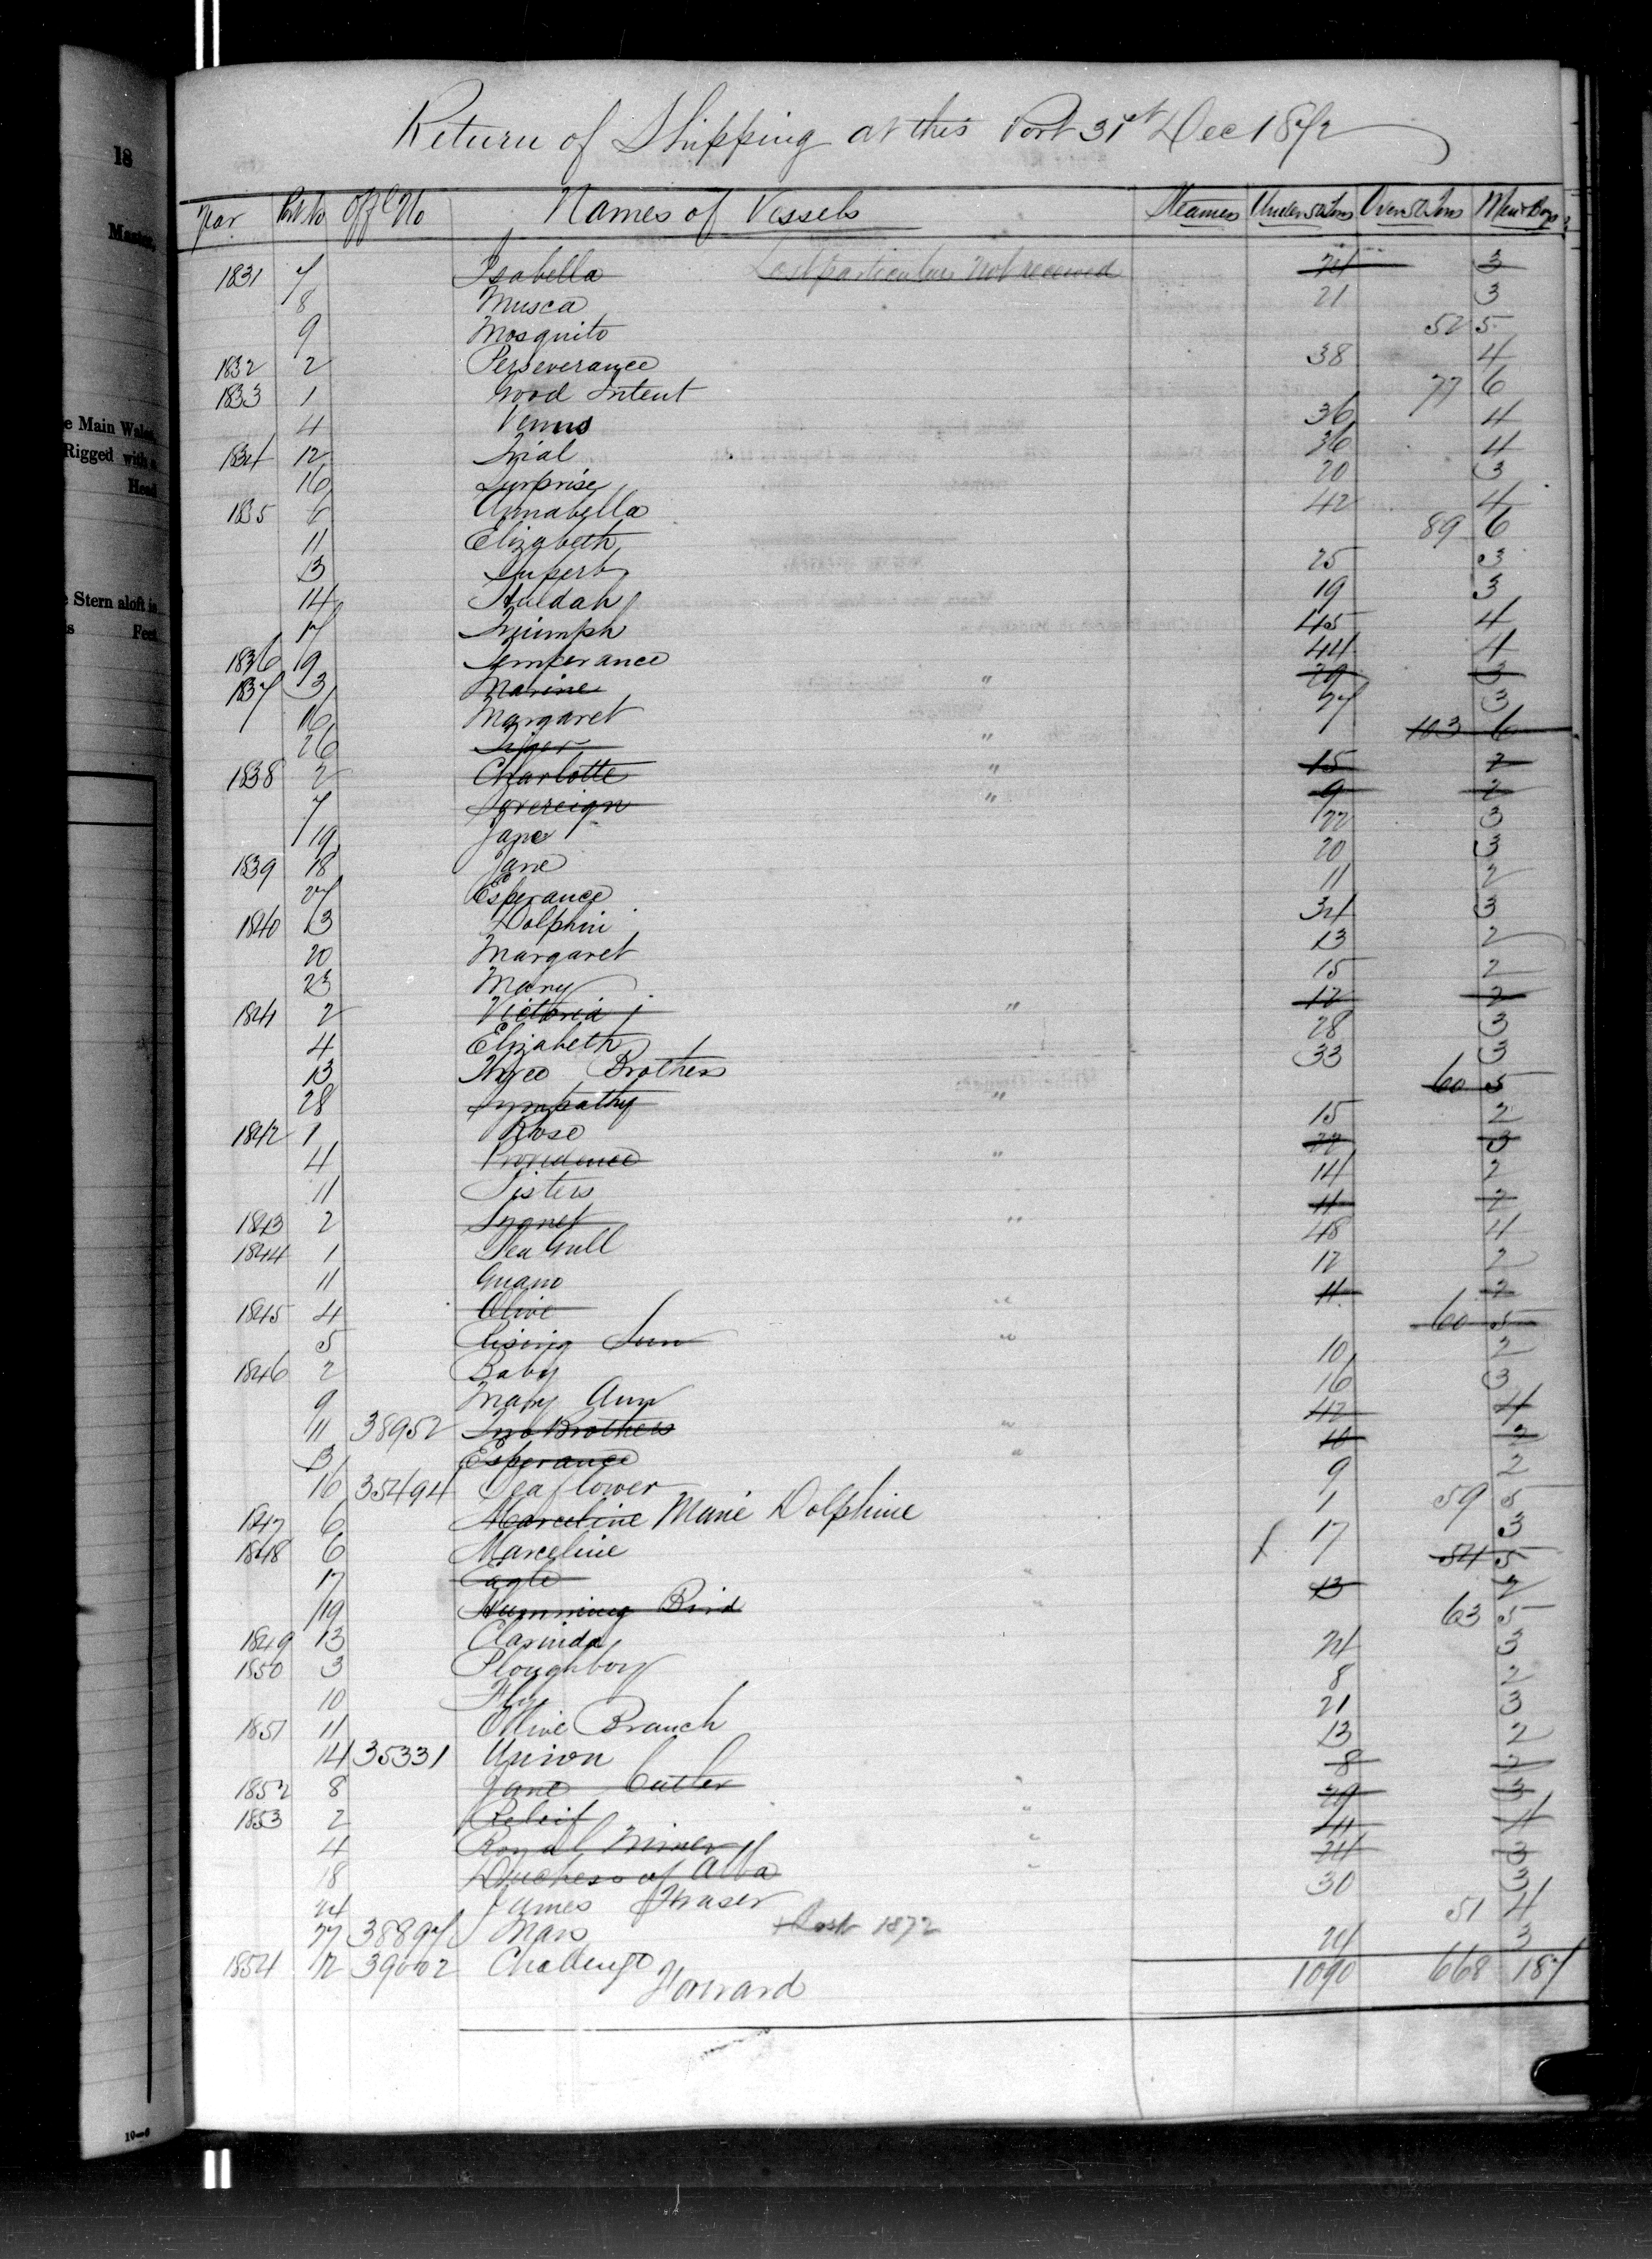 Return of Shipping at this Port 31st Dec 1872
Year Port No Offl No Names of Vessels Steamers Under 50 Tons Over 50 Tons Men & Boys
1831 7 Isabella Lost particulars not received 24 3
8 Musca 21 3
9 Mosquito 52 5
1832 2 Perseverance 38 4
1833 1 Good Intent 77 6
4 Venus 36 4
1834 12 Trial 36 4
16 Surprise 20 3
1835 6 Annabella 42 4
11 Elizabeth 89 6
13 Superb 25 3
14 Huldah 19 3
17 Triumph 45 4
1836 9 Temperance 44 4
1837 3 Marine " 29 3
16 Margaret 27 3
26 Tiger " 103 6
1838 2 Charlotte " 15 2
7 Sovereign " 9 2
19 Jane 22 3
1839 18 Jane 20 3
27 Esperance 11 2
1840 13 Dolphin 34 3
20 Margaret 13 2
23 Mary 15 2
1841 2 Victoria " 12 2
4 Elizabeth 28 3
13 Three Brothers 33 3
28 Sympathy " 60 5
1842 1 Rose 15 2
4 Providence " 22 3
11 Sisters 14 2
1843 2 Sygnet " 11 2
1844 1 Sea Gull 48 4
11 Guano 12 2
1845 4 Olive " 11 2
5 Rising Sun " 60 5
1846 2 Baby 10 2
9 Mary Ann 16 3
11 38952 Two Brothers " 42 4
13 Esperance " 10 2
16 35494 Seaflower 9 2
1847 6 Marceline Marie Dolphine 59 5
1848 6 Marceline 17 3
17 Eagle " 54 5
19 Humming Bird " 13 2
1849 13 Clarinda 63 5
1850 3 Ploughboy 24 3
10 Fly 8 2
1851 11 Olive Branch 21 3
14 35331 Union 13 2
1852 8 Jane Cutler " 8 2
1853 2 Releif " 29 3
4 Royal Miner " 44 4
18 Duchess of Alba " 24 3
24 James Fraser 30 3
27 38897 Mars Lost 1872 51 4
1854 12 39002 Challenge 24 3
Forward 1090 668 187
18
Master,
e Main Wales
Rigged with a
Head
e Stern aloft is
is Feet